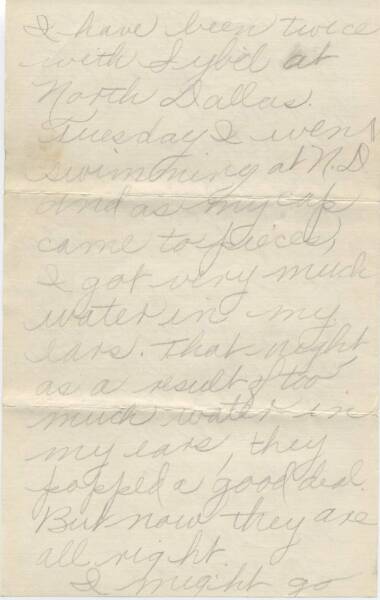 I have been twice
with Sybil at
North Dallas.
Tuesday I went
swimming at N.D
and as my cap
came to pieces,
I got very much
water in my
ears. That night,
as a result of too
much water in
my ears, they
popped a good deal.
But now they are
all right.
I might go